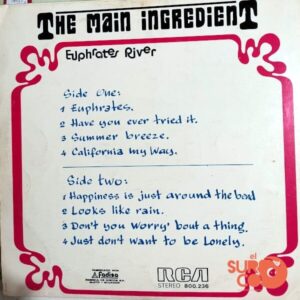 THE MAIN INGREDIENT
Euphrates River
Side One:
1 Euphrates.
2 Have you ever tried it.
3 Summer breeze.
4 California my way.
Side two:
1 Happiness is just around the bend
2 Looks like rain.
3 Don't you worry' bout a thing.
4 Just don't want to be Lonely.
Fediso
RCA
STEREO 800.236
el
SURCO